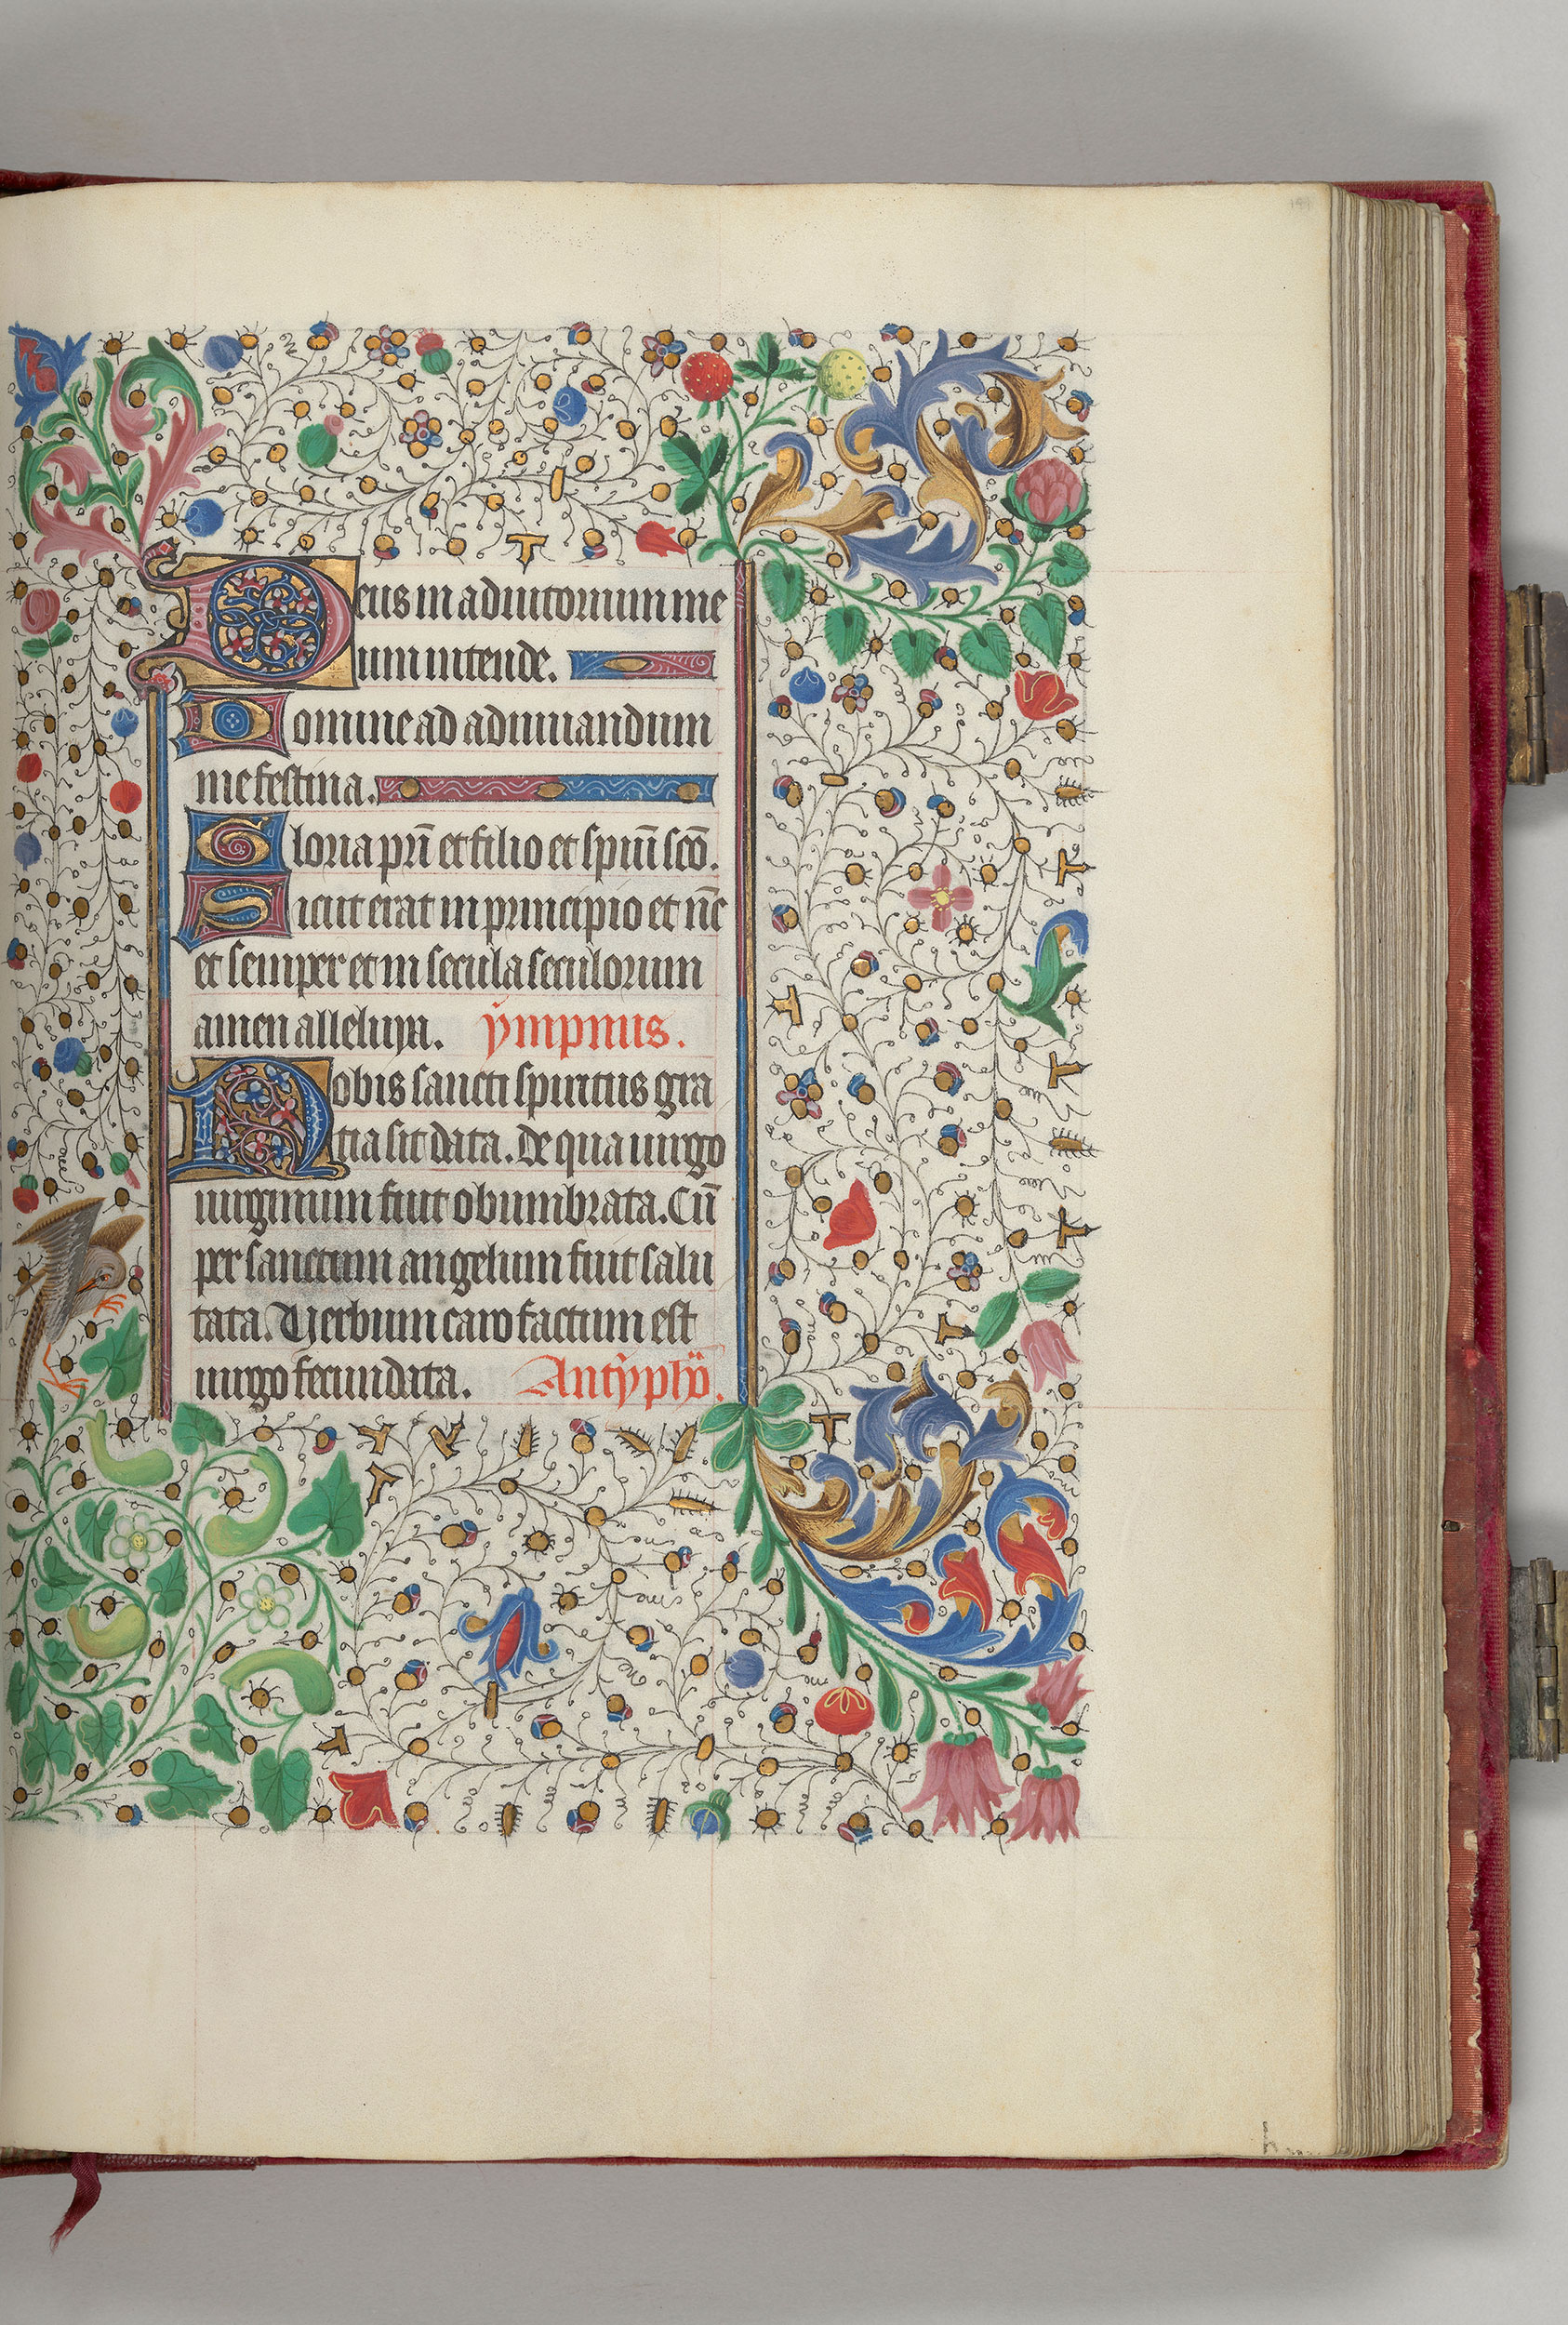 Deus in adiutorium me
um intende.
Domine ad adiuuandum
me festina.
Gloria pr̃i et filio et spiũi scõ.
Sicut erat in principio et nũc
et semper et in secula seculorum
amen alleluya. ympnus.
Nobis sancti spiritus gra
tia sit data. De qua uirgo
uirginum fuit obumbrata. Cũ
per sanctum angelum fuit salu
tata. Verbum caro factum est
uirgo fecundata. Antypho.